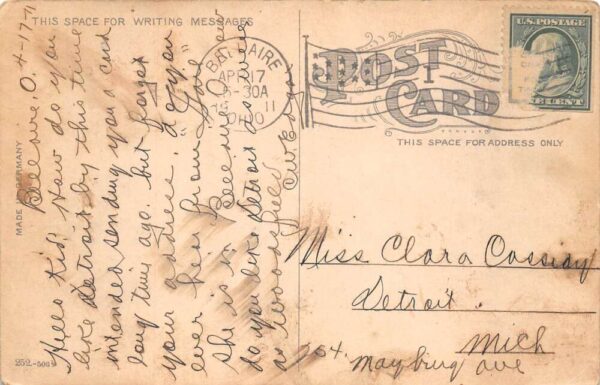 THIS SPACE FOR WRITING MESSAGES
Bellaire, O. 4-17-11
Hello Kid, How do you
like Detroit by this time
intended sending you a card
long time ago. but forgot
your address. do you
ever hear from
she is in Bellaire now
do you like Detroit as well
as Woodsfield
MADE IN GERMANY
252-5069
BELLAIRE
APR 17
-30A
11
OHIO
POST CARD
THIS SPACE FOR ADDRESS ONLY
U.S. POSTAGE
ONE CENT
Miss Clara Cassiday
Detroit.
Mich
254. Mayburg ave